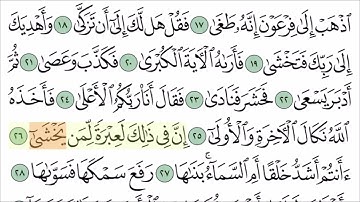 ٱذۡهَبۡ إِلَىٰ فِرۡعَوۡنَ إِنَّهُۥ طَغَىٰ ١٧ فَقُلۡ هَل لَّكَ إِلَىٰٓ أَن تَزَكَّىٰ ١٨ وَأَهۡدِيَكَ
إِلَىٰ رَبِّكَ فَتَخۡشَىٰ ١٩ فَأَرَىٰهُ ٱلۡأٓيَةَ ٱلۡكُبۡرَىٰ ٢٠ فَكَذَّبَ وَعَصَىٰ ٢١ ثُمَّ
أَدۡبَرَ يَسۡعَىٰ ٢٢ فَحَشَرَ فَنَادَىٰ ٢٣ فَقَالَ أَنَا۠ رَبُّكُمُ ٱلۡأَعۡلَىٰ ٢٤ فَأَخَذَهُ
ٱللَّهُ نَكَالَ ٱلۡأٓخِرَةِ وَٱلۡأُولَىٰٓ ٢٥ إِنَّ فِي ذَٰلِكَ لَعِبۡرَةٗ لِّمَن يَخۡشَىٰٓ ٢٦
ءَأَنتُمۡ أَشَدُّ خَلۡقًا أَمِ ٱلسَّمَآءُۚ بَنَىٰهَا ٢٧ رَفَعَ سَمۡكَهَا فَسَوَّىٰهَا ٢٨